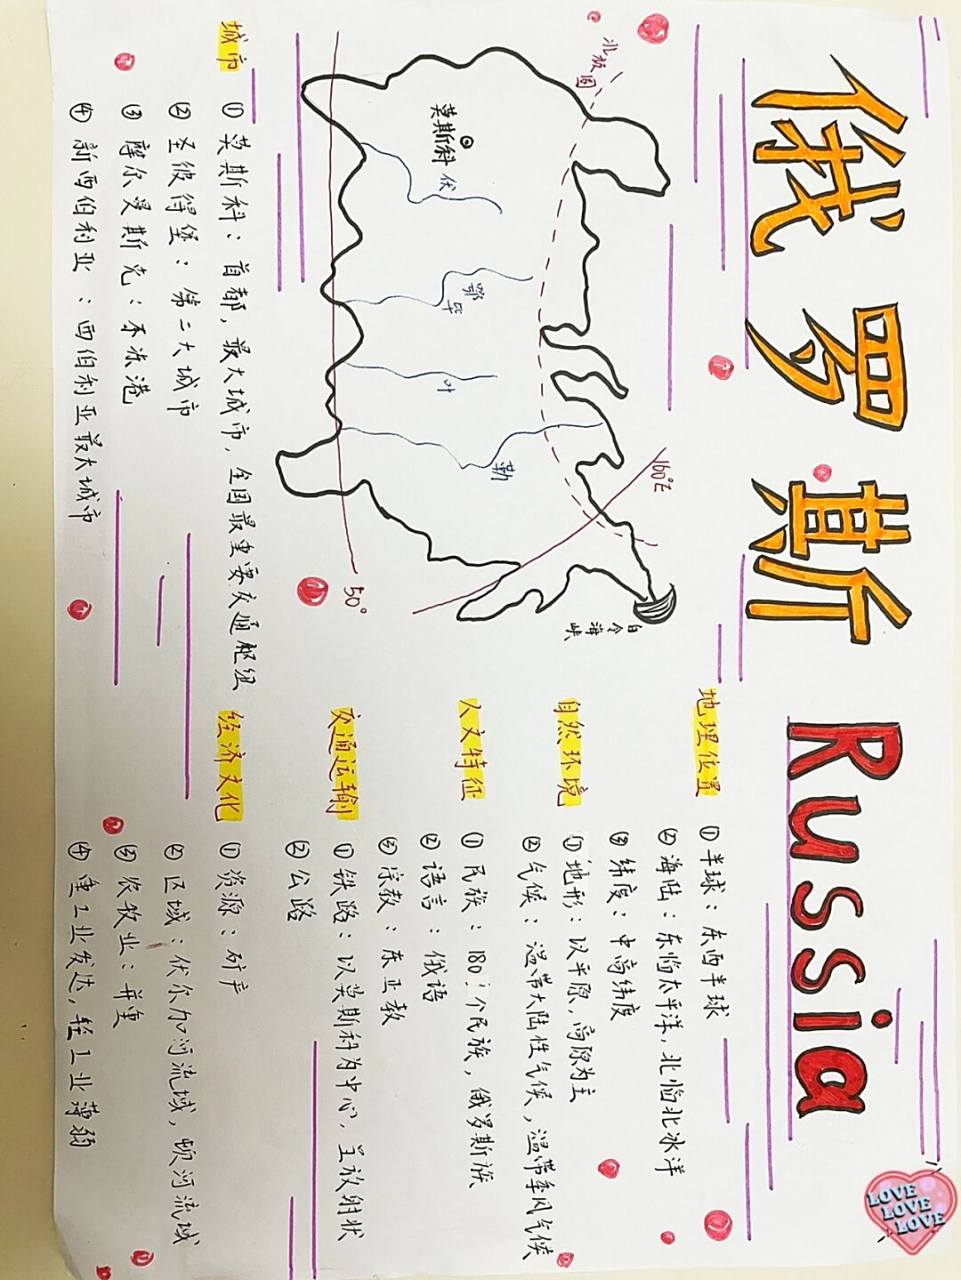 俄罗斯 Russia
北极圈
莫斯科
伏
鄂毕
叶
勒
160°E
50°
白令海峡
地理位置
① 半球：东西半球
② 海陆：东临太平洋，北临北冰洋
③ 纬度：中高纬度
自然环境
① 地形：以平原，高原为主
② 气候：温带大陆性气候，温带季风气候
人文特征
① 民族：180个民族，俄罗斯族
② 语言：俄语
③ 宗教：东正教
交通运输
① 铁路：以莫斯科为中心，呈放射状
② 公路
城市
① 莫斯科：首都，最大城市，全国最重要交通枢纽
② 圣彼得堡：第二大城市
③ 摩尔曼斯克：不冻港
④ 新西伯利亚：西伯利亚最大城市
经济文化
① 资源：矿产
② 区域：伏尔加河流域，顿河流域
③ 农牧业：并重
④ 重工业发达，轻工业薄弱
LOVE
LOVE
LOVE